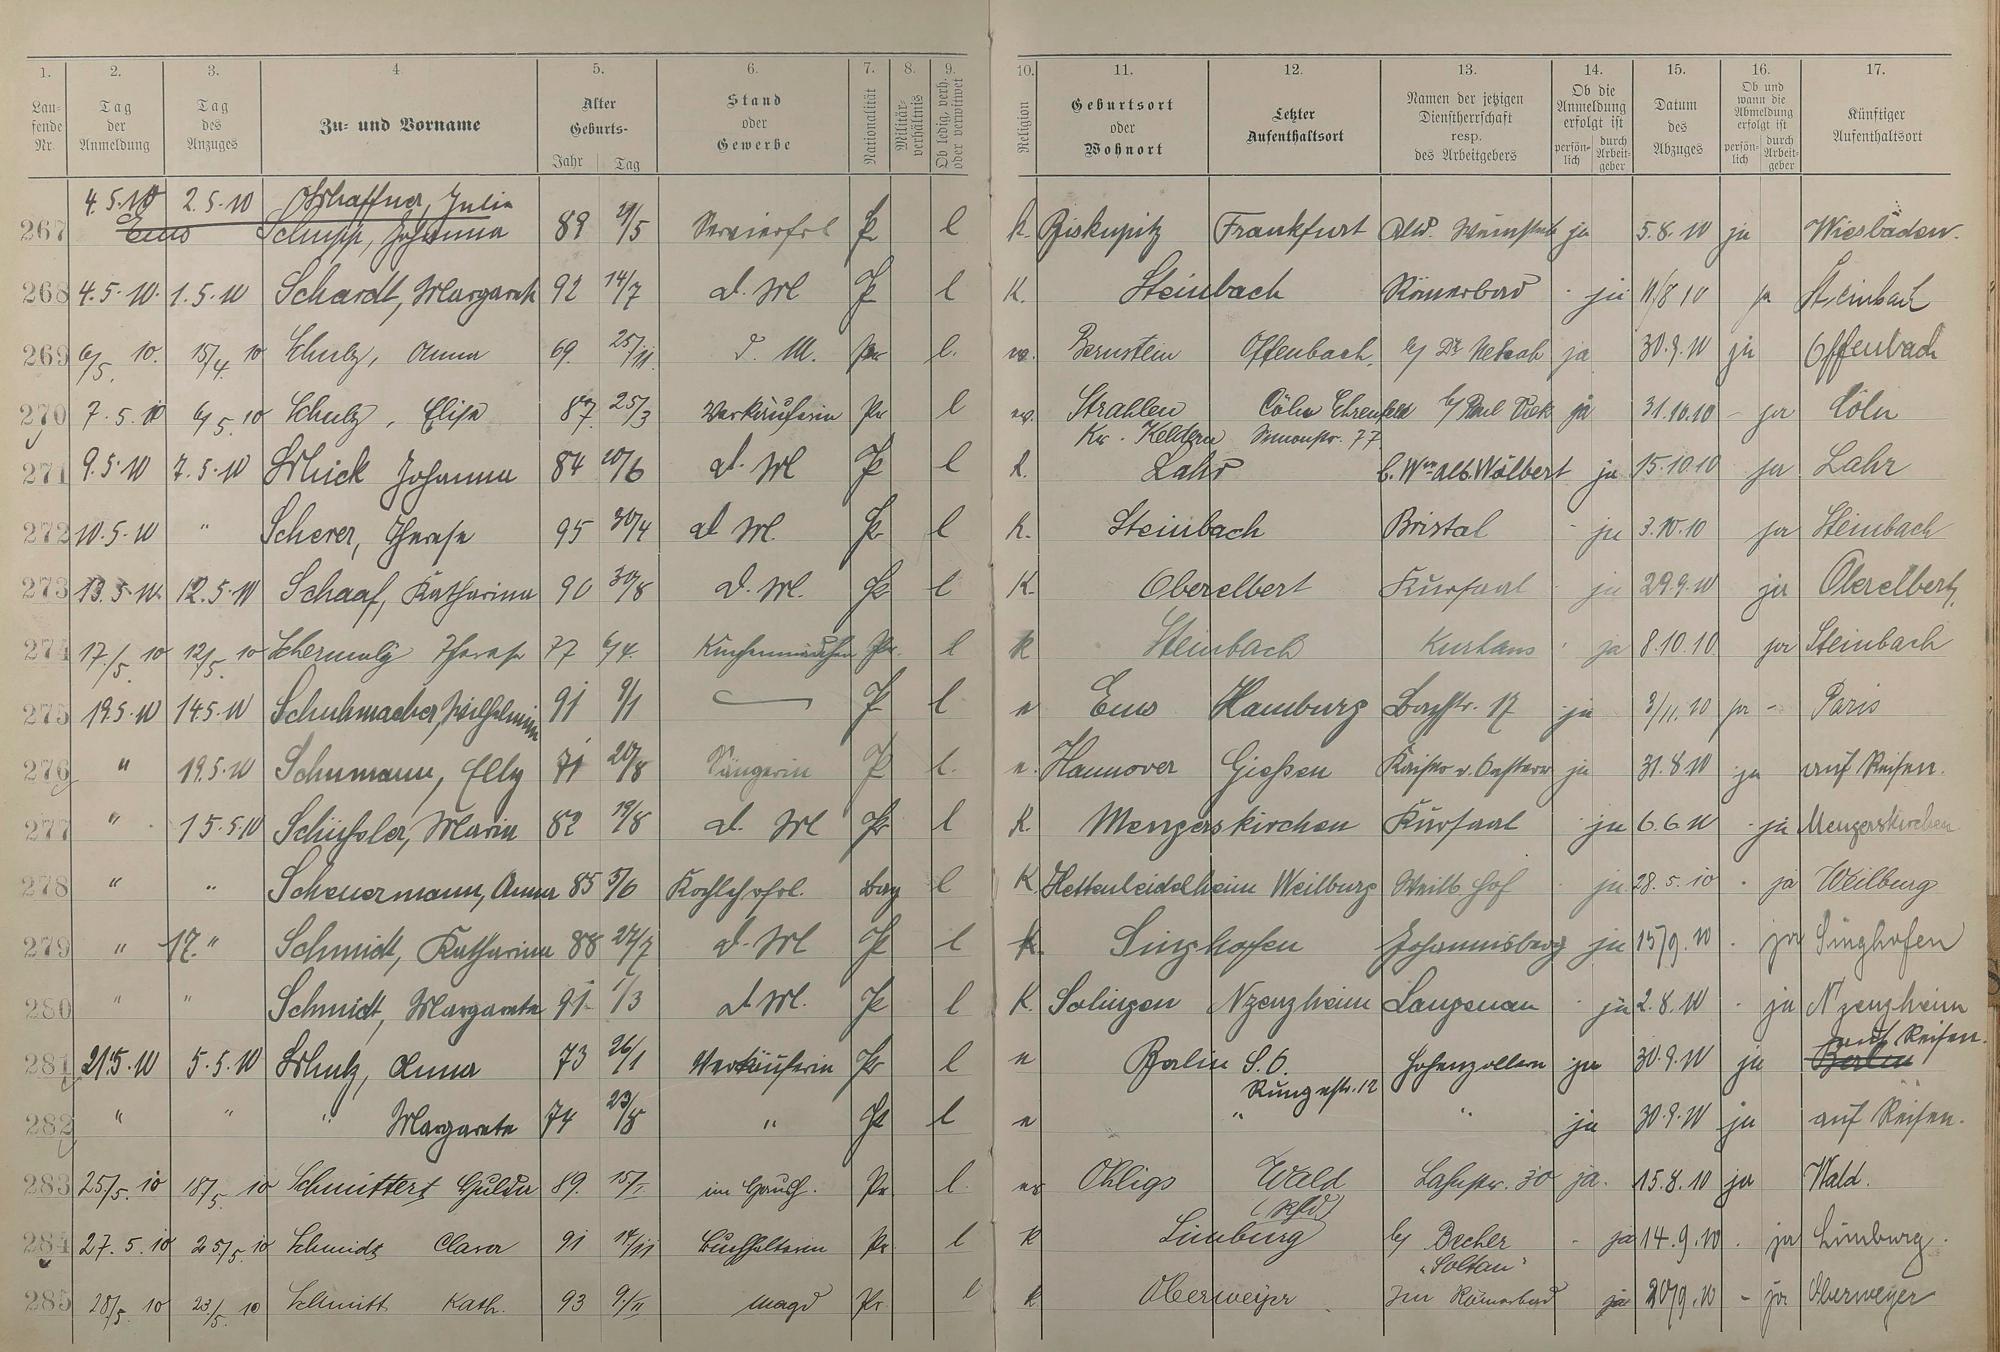 1. 2. 3. 4 5. 6. 7. 8. 9. 10. 11. 12. 13. 14. 15. 16. 17.
Lau-
fende
Nr.
Tag
der
Anmeldung
Tag
des
Anzuges
Zu- und Vorname
Alter
Geburts-
Jahr Tag
Stand
oder
Gewerbe
Nationalität
Militär-
verhältnis
Ob ledig, verh.
oder verwitwet
Religion
Geburtsort
oder
Wohnort
Letzter
Aufenthaltsort
Namen der jetzigen
Dienstherrschaft
resp.
des Arbeitgebers
Ob die
Anmeldung
erfolgt ist
persön-
lich
durch
Arbeit-
geber
Datum
des
Abzuges
Ob und
wann die
Abmeldung
erfolgt ist
persön-
lich
durch
Arbeit-
geber
Künftiger
Aufenthaltsort
4.5.10 2.5.10 Julia
267 Ems Schupp, Johanna 89 29/5 Servierfrl Pr l k. Biskupitz Frankfurt ja 5.8.10 ja Wiesbaden.
268 4.5.10. 1.5.10 Schardt, Margareth 92 14/7 d. Ml P l K. Steinbach Römerbad - ja 11/8 10 ja Steinbach
269 6/5. 10. 15/4. 10 Schulz, Anna 69. 25/11. d. M. Pr l. ev. Bernstein Offenbach. b/ Dr ja 30.9.10 ja Offenbach
270 7.5.10 6/5.10 Schulz, Elise 87. 25/3 Verkäuferin Pr l ev. Strahlen Cöln Ehrenfeld b/ ja 31.10.10 - ja Cöln
Kr. Keldern Simonstr. 77
271 9.5.10 7.5.10 Schick Johanna 84 20/6 d. Ml P l K. Lahr b. Wwe Alb. Wölbert ja 15.10.10 ja Lahr
272 10.5.10 " Scherer, Therese 95 30/4 d Ml. Pr l K. Steinbach Bristol - ja 3.10.10 ja Steinbach
273 13.5.10. 12.5.10 Schaaf, Katharina 90 30/8 d. Ml. Pr l K. Oberelbert Kursaal ja 29.9.10 ja Oberelbert,
274 17./5. 10 12/5. 10 Schermuly Therese 77 6/4. Küchenmädchen Pr. l k Steinbach Kurhaus ja 8.10.10. ja Steinbach
275 19.5.10 14.5.10 Schuhmacher, Wilhelmine 91 9/1 P l e Ems Hamburg Bachstr. 17 ja 3/11.10 ja - Paris
276 " 19.5.10 Schumann, Elly 71 20/8 Sängerin P l. e. Hannover Gießen ja 31.8.10 ja auf Reisen.
277 " 15.5.10 Schüßler, Maria 82 19/8 d. Ml Pr l K. Mengerskirchen Kursaal ja 6.6.10 ja Mengerskirchen
278 " " Scheuermann, Anna 85 Kochlehrfrl. Bay l K Hettenleidelheim Weilburg Hof ja 28.5.10 ja Weilburg
279 " 17. " Schmidt, Katharina 88 27/7 d. Ml P l K. Singhofen Johannisberg ja 15/9.10 ja Singhofen
280 " " Schmidt, Margareta 91 1/3 d Ml. P l K. Solingen Nzenzheim Langenau - ja 2.8.10 ja Nzenzheim
auf Reisen.
281 21.5.10 5.5.10 Schulz, Anna 73 26/1 Verkäuferin Pr l e Berlin S.O. Hohenzollern ja 30.9.10 ja Berlin
Rungestr. 12
282 " " " Margareta 74 23/8 " Pr l e " " ja 30.9.10 ja auf Reisen.
283 25/5. 10 18/5. 10 Schmittert Hulda 89. im Haush. Pr l. ev Ohligs Wald Lahnstr. 30 ja. 15.8.10 ja Wald.
284 27.5.10 25/5.10 Schmidt Clara 91 Buchhalterin Pr l k Limburg b/ Becher - ja 14.9.10. ja Limburg.
"Soltau"
285 28/5. 10 23/5. 10 Schmitt Kath. 93 Magd Pr. l k Oberweyer Zum Römerbad ja 20/9.10 - ja Oberweyer